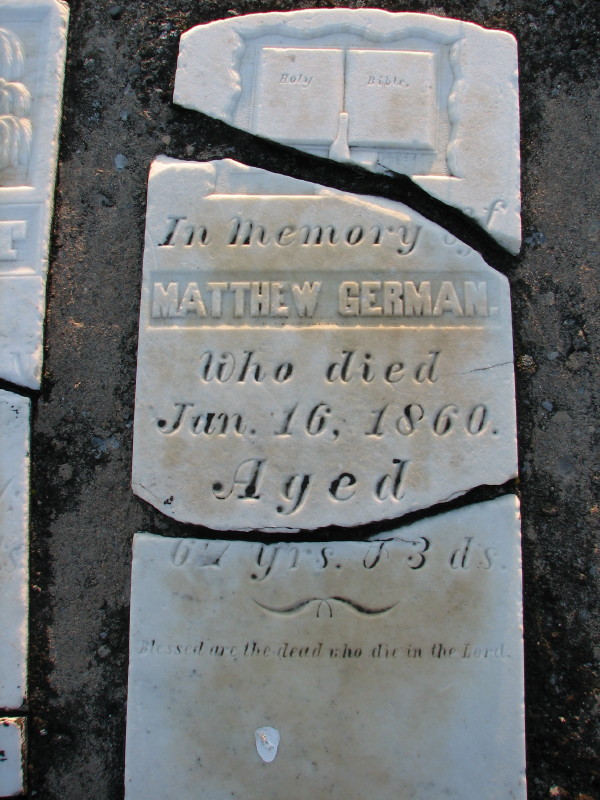 Holy Bible.
In Memory of
MATTHEW GERMAN.
Who died
Jan. 16, 1860.
Aged
yrs. & 3 ds.
Blessed are the dead who die in the Lord.